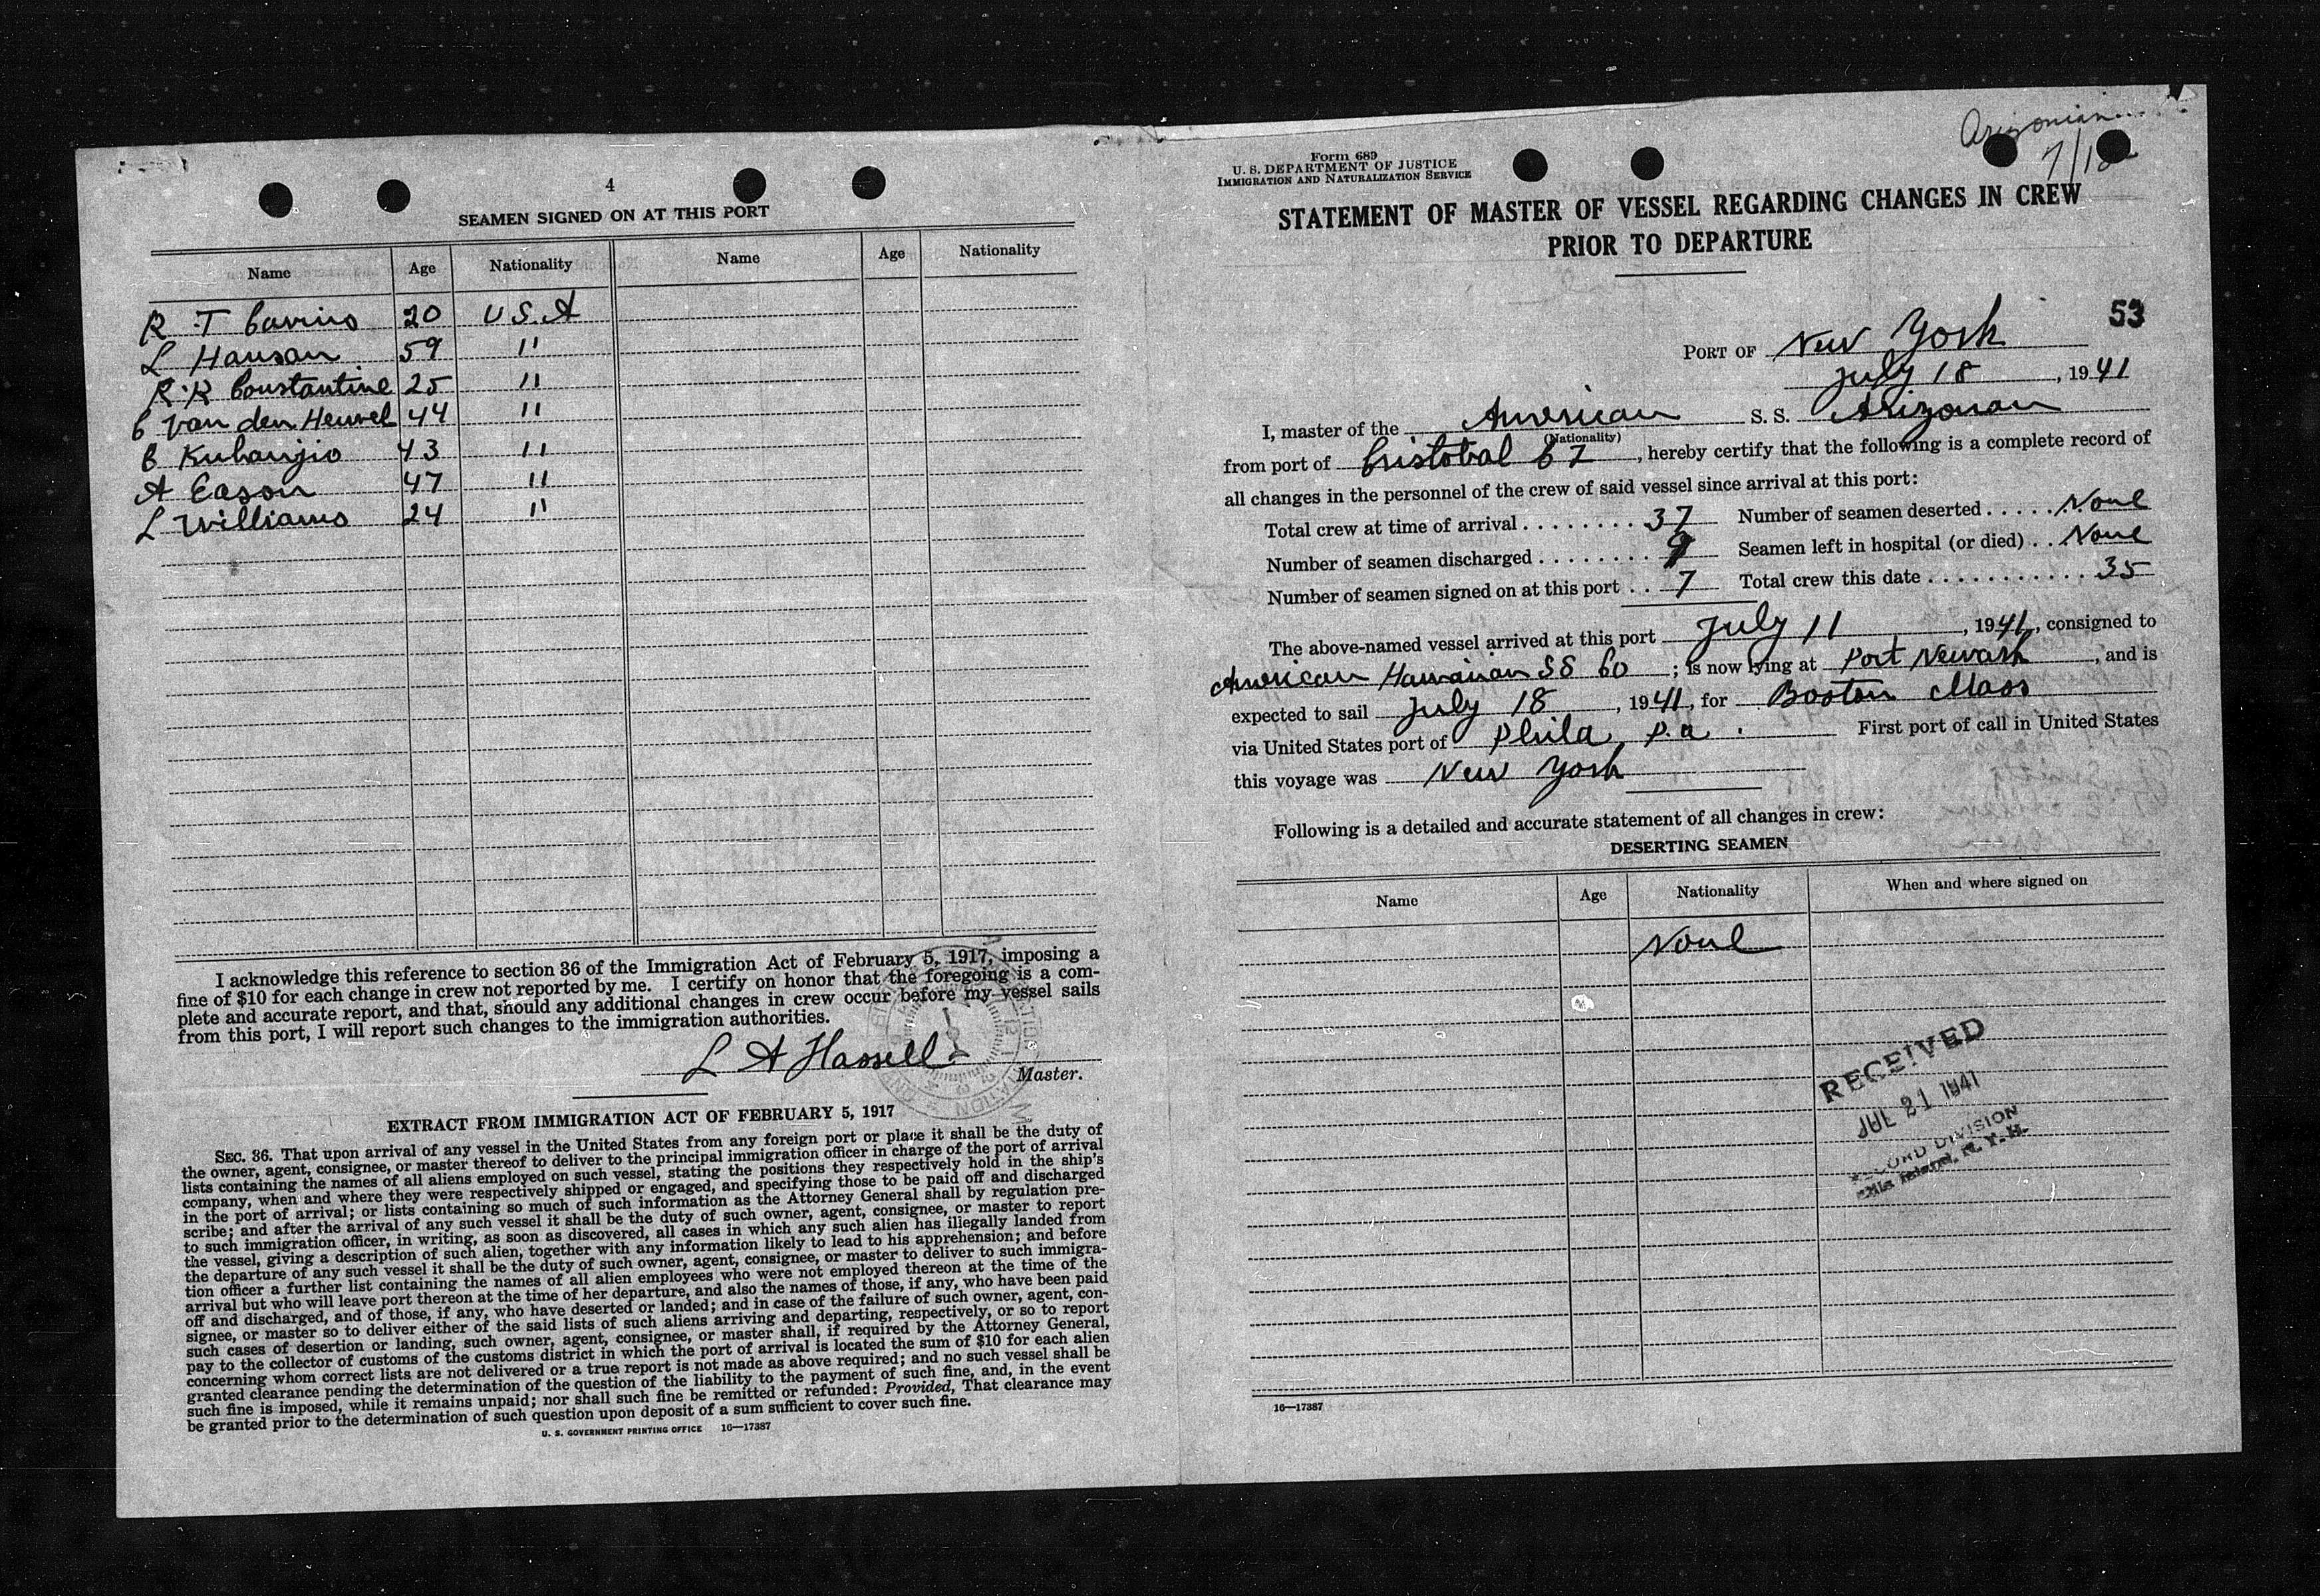 4
SEAMEN SIGNED ON AT THIS PORT
Name Age Nationality Name Age Nationality
R T 20 U.S.A
L Hansan 59 "
R.R Constantine 25 "
C Van den Heuvel 44 "
43 "
A Eason 47 "
L Williams 24 "
I acknowledge this reference to section 36 of the Immigration Act of February 5, 1917, imposing a
fine of $10 for each change in crew not reported by me. I certify on honor that the foregoing is a com-
plete and accurate report, and that, should any additional changes in crew occur before my vessel sails
from this port, I will report such changes to the immigration authorities.
L A Hassell
Master.
EXTRACT FROM IMMIGRATION ACT OF FEBRUARY 5, 1917
SEC. 36. That upon arrival of any vessel in the United States from any foreign port or place it shall be the duty of
the owner, agent, consignee, or master thereof to deliver to the principal immigration officer in charge of the port of arrival
lists containing the names of all aliens employed on such vessel, stating the positions they respectively hold in the ship's
company, when and where they were respectively shipped or engaged, and specifying those to be paid off and discharged
in the port of arrival; or lists containing so much of such information as the Attorney General shall by regulation pre-
scribe; and after the arrival of any such vessel it shall be the duty of such owner, agent, consignee, or master to report
to such immigration officer, in writing, as soon as discovered, all cases in which any such alien has illegally landed from
the vessel, giving a description of such alien, together with any information likely to lead to his apprehension; and before
the departure of any such vessel it shall be the duty of such owner, agent, consignee, or master to deliver to such immigra-
tion officer a further list containing the names of all alien employees who were not employed thereon at the time of the
arrival but who will leave port thereon at the time of her departure, and also the names of those, if any, who have been paid
off and discharged, and of those, if any, who have deserted or landed; and in case of the failure of such owner, agent, con-
signee, or master so to deliver either of the said lists of such aliens arriving and departing, respectively, or so to report
such cases of desertion or landing, such owner, agent, consignee, or master shall, if required by the Attorney General,
pay to the collector of customs of the customs district in which the port of arrival is located the sum of $10 for each alien
concerning whom correct lists are not delivered or a true report is not made as above required; and no such vessel shall be
granted clearance pending the determination of the question of the liability to the payment of such fine, and, in the event
such fine is imposed, while it remains unpaid; nor shall such fine be remitted or refunded: Provided, That clearance may
be granted prior to the determination of such question upon deposit of a sum sufficient to cover such fine.
U. S. GOVERNMENT PRINTING OFFICE 16—17387
Arizonian
7/18
Form 689
U. S. DEPARTMENT OF JUSTICE
IMMIGRATION AND NATURALIZATION SERVICE
STATEMENT OF MASTER OF VESSEL REGARDING CHANGES IN CREW
PRIOR TO DEPARTURE
53
PORT OF New York
July 18, 1941
I, master of the American S. S. Arizonan
(Nationality)
from port of Cristobal C Z, hereby certify that the following is a complete record of
all changes in the personnel of the crew of said vessel since arrival at this port:
Total crew at time of arrival ........ 37 Number of seamen deserted ..... None
Number of seamen discharged ........ 9 Seamen left in hospital (or died) .. None
Number of seamen signed on at this port .. 7 Total crew this date ............ 35
The above-named vessel arrived at this port July 11, 1941, consigned to
American Hawaiian SS Co; is now lying at Port Newark, and is
expected to sail July 18, 1941, for Boston Mass
via United States port of Phila P.a. First port of call in United States
this voyage was New York
Following is a detailed and accurate statement of all changes in crew:
DESERTING SEAMEN
Name Age Nationality When and where signed on
None
RECEIVED
JUL 21 1941
RECORD DIVISION
Ellis Island, N. Y. H.
16—17387